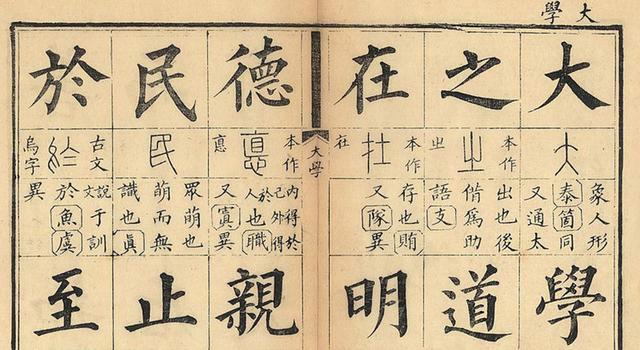 大學
大
象人形
泰箇同
又通太
學
之
本作
㞢
出也後
偕為助
語支
道
在
本作
在
存也賄
又隊異
明
大學
德
本作
悳
悳
內得於
己外得
於人也職
又寘異
親
民
眾萌也
萌而無
識也眞
止
於
古文
烏字
說文于訓
於魚虞
異
至